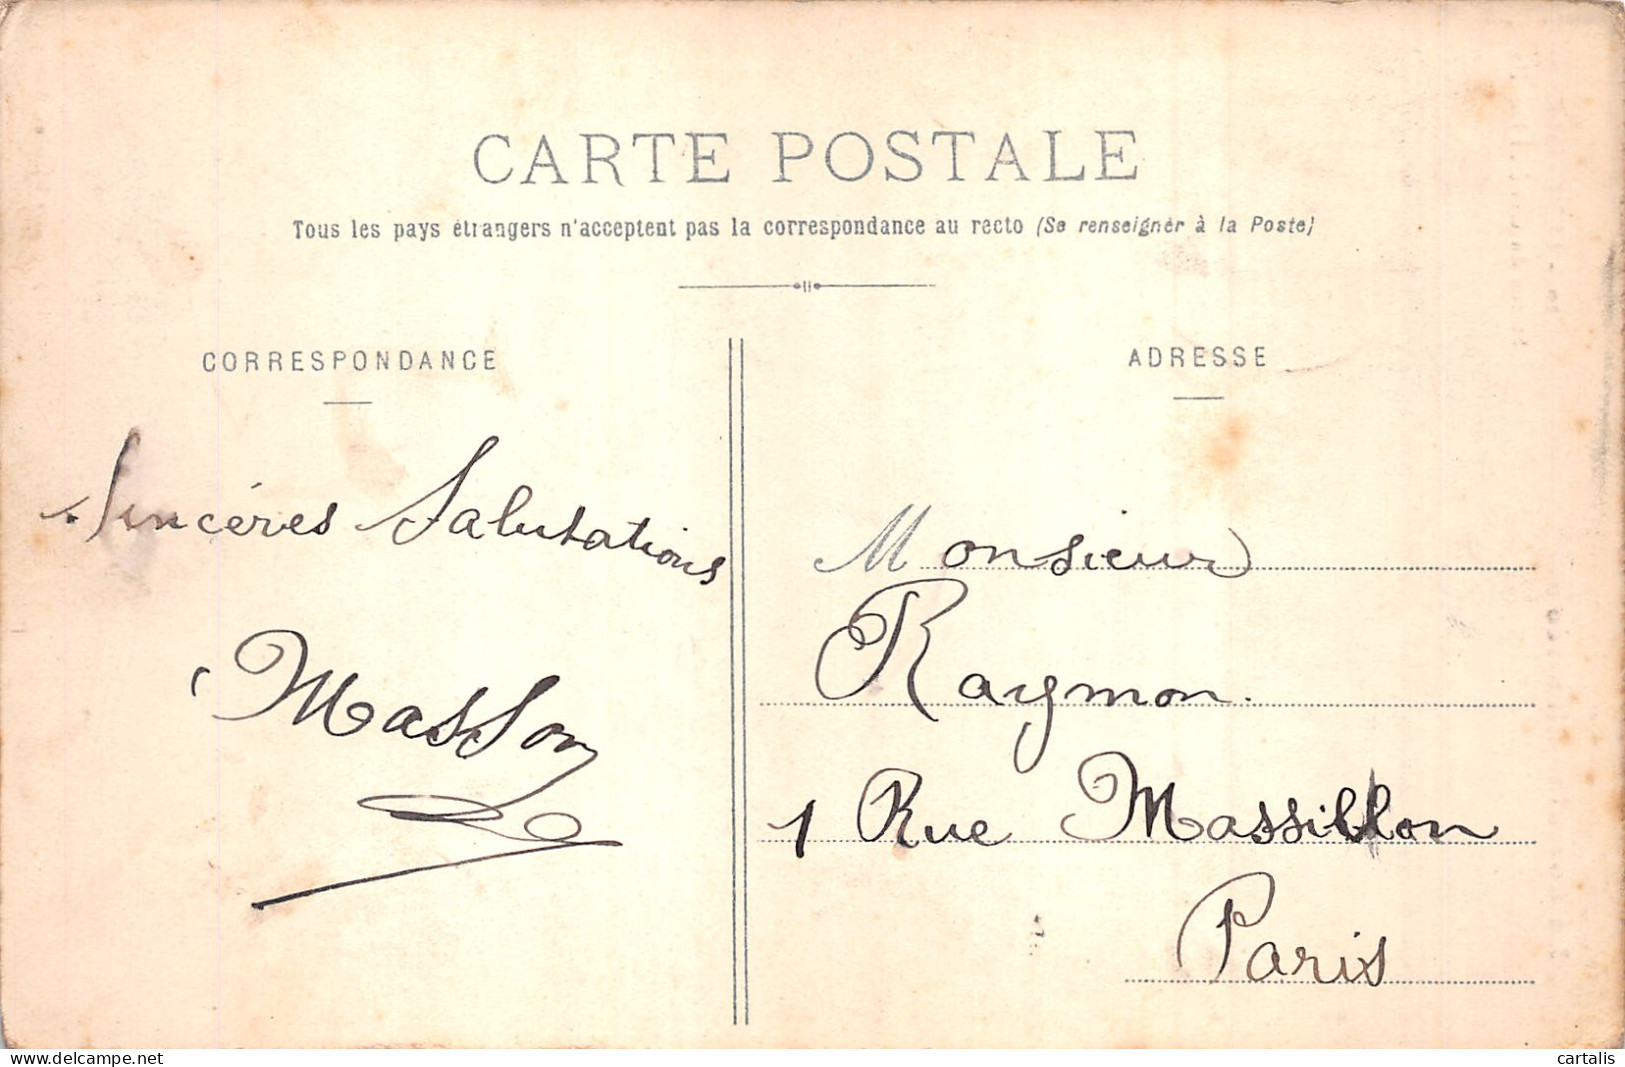 CARTE POSTALE
Tous les pays étrangers n'acceptent pas la correspondance au recto (Se renseigner à la Poste)
CORRESPONDANCE
Sincéres Salutations
Masson
ADRESSE
Monsieur
Raymon.
1 Rue Massillon
Paris
www.delcampe.net
cartalis